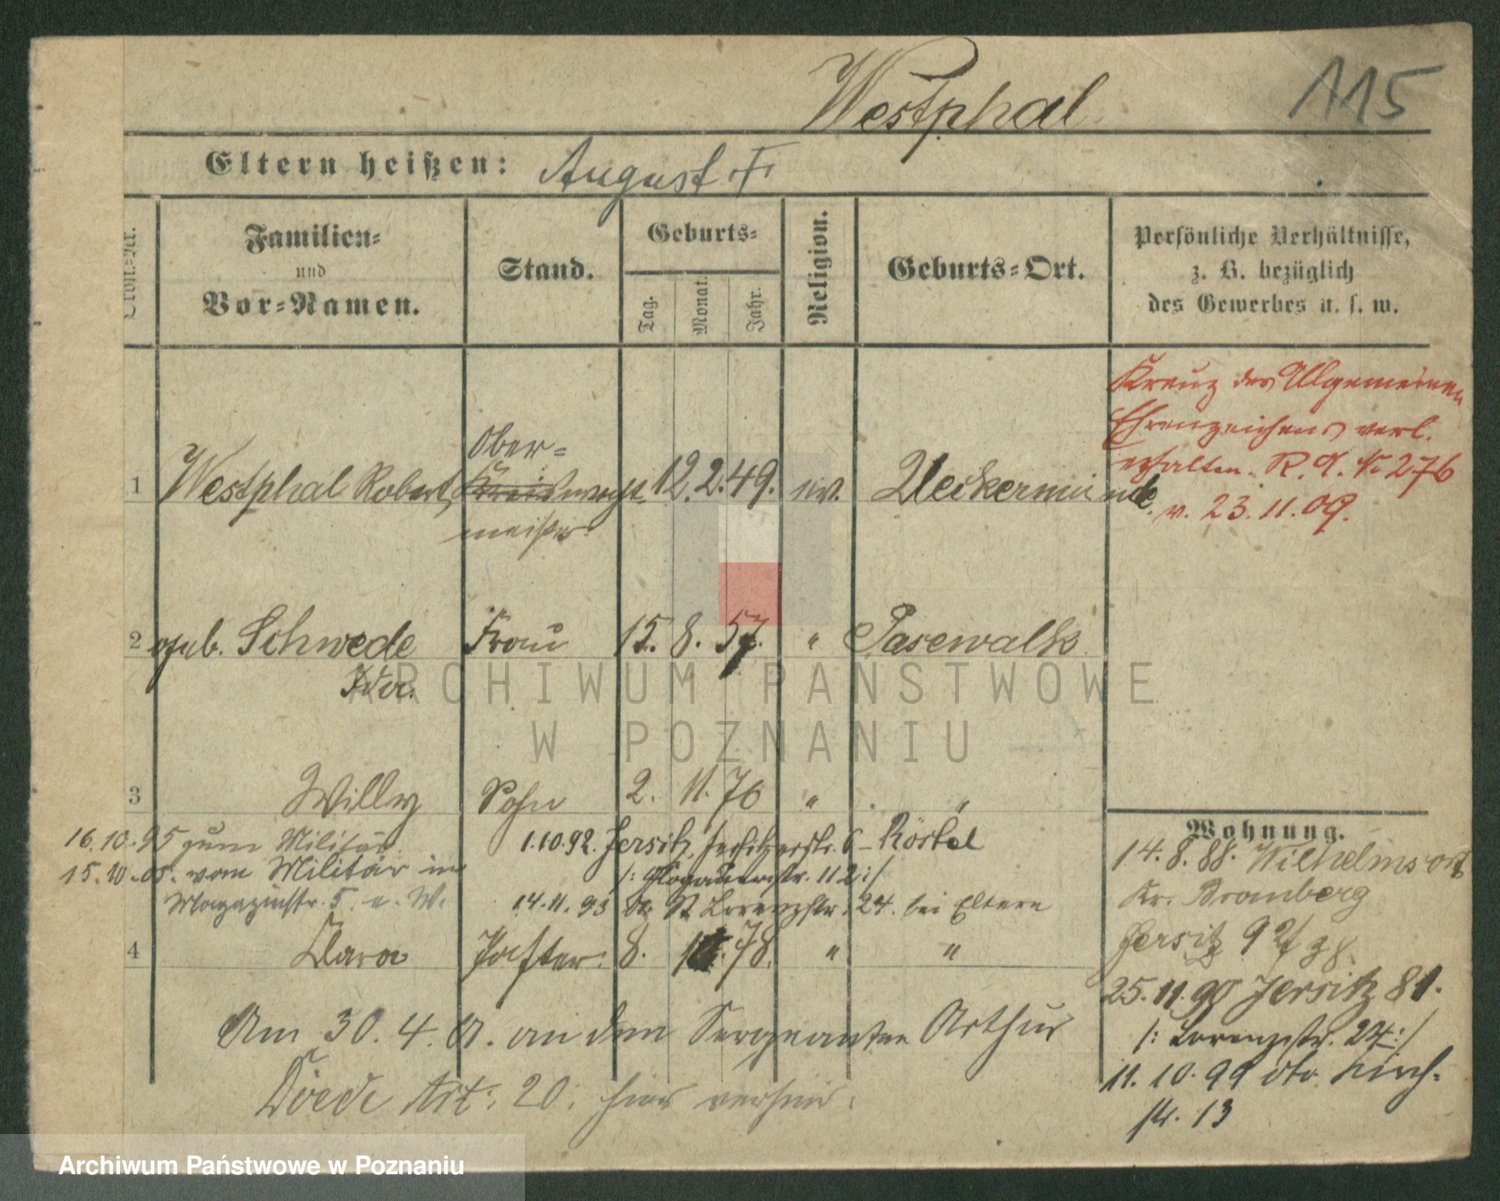 Westphal 115
Eltern heißen: August
Familien- und Vor-Namen.
Stand.
Geburts-
Tag. Monat. Jahr.
Religion.
Geburts-Ort.
Persönliche Verhältnisse,
z. B. bezüglich
des Gewerbes u. s. w.
Kreuz des Allgemeinen
Ehrenzeichens verl.
erhalten.
v. 23.11.09.
Ober-
1 Westphal Robert, wacht 12. 2. 49. ev. Ueckermünde.
meister
2 geb. Schwede Frau 15. 8. 57. " Pasewalk
Ida.
ARCHIWUM PAŃSTWOWE
W POZNANIU
3 Willy Sohn 2. 11. 76 " "
16.10.95 zum Militär. 1.10.92. Jersitz,
15.10.05. vom Militär in 112:/
Magazinstr. 5. 14.11.95 St Lorenzstr. 24. bei Eltern
4 Clara Tochter. 8. 78. " "
Am 30. 4. an dem Sergeanten Arthur
20. hier
Wohnung.
14.8.88. Wilhelmsort
Kr. Bromberg
Jersitz 9
25.11.90 Jersitz 81.
/: Lorenzstr. 24:/
11.10.99 Kirch-
str. 13
Archiwum Państwowe w Poznaniu